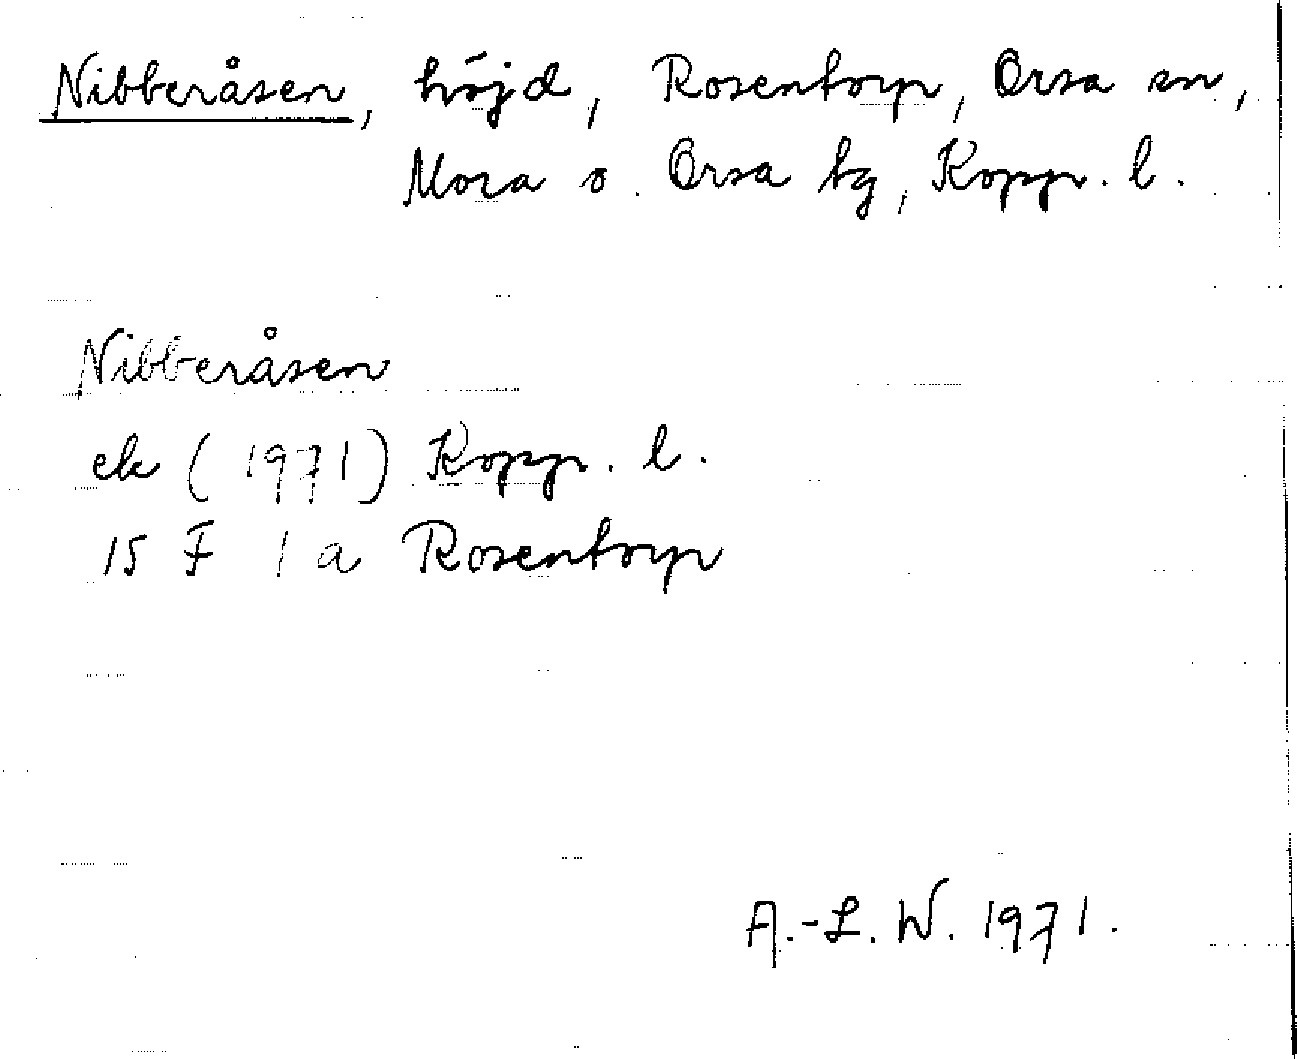 Nibberåsen, höjd, Rosentorp, Orsa sn,
Mora o. Orsa tg, Kopp. l.
Nibberåsen
ek (1971) Kopp. l.
15 F 1 a Rosentorp
A.-L. W. 1971.